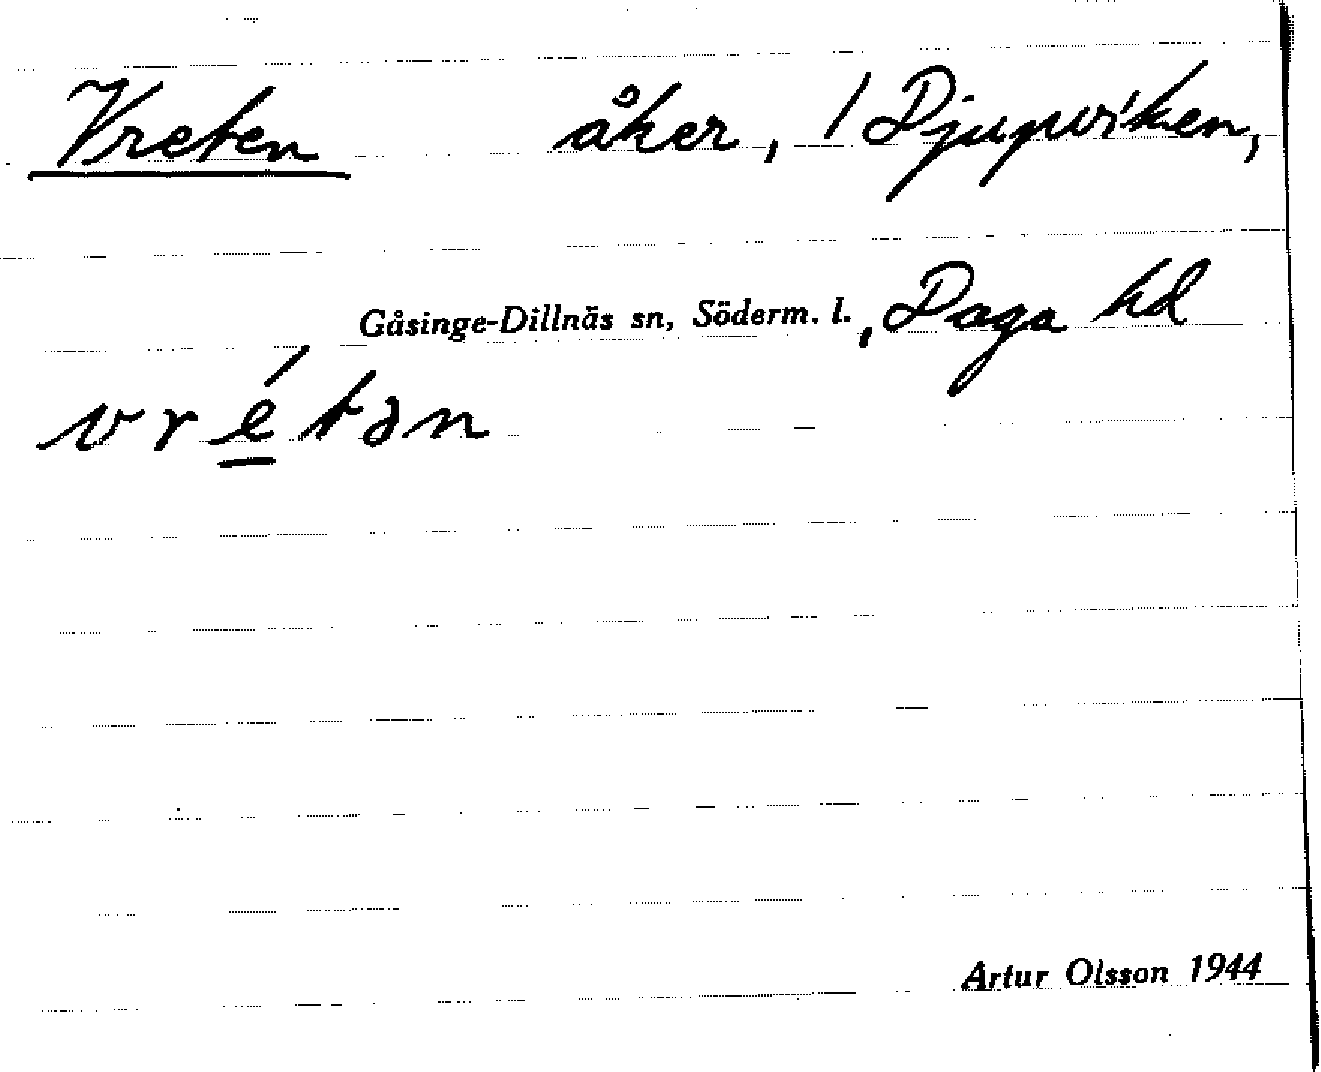 Vreten åker, / Djupviken,
Gåsinge-Dillnäs sn, Söderm. l., Daga hd
vré̲tən
Artur Olsson 1944